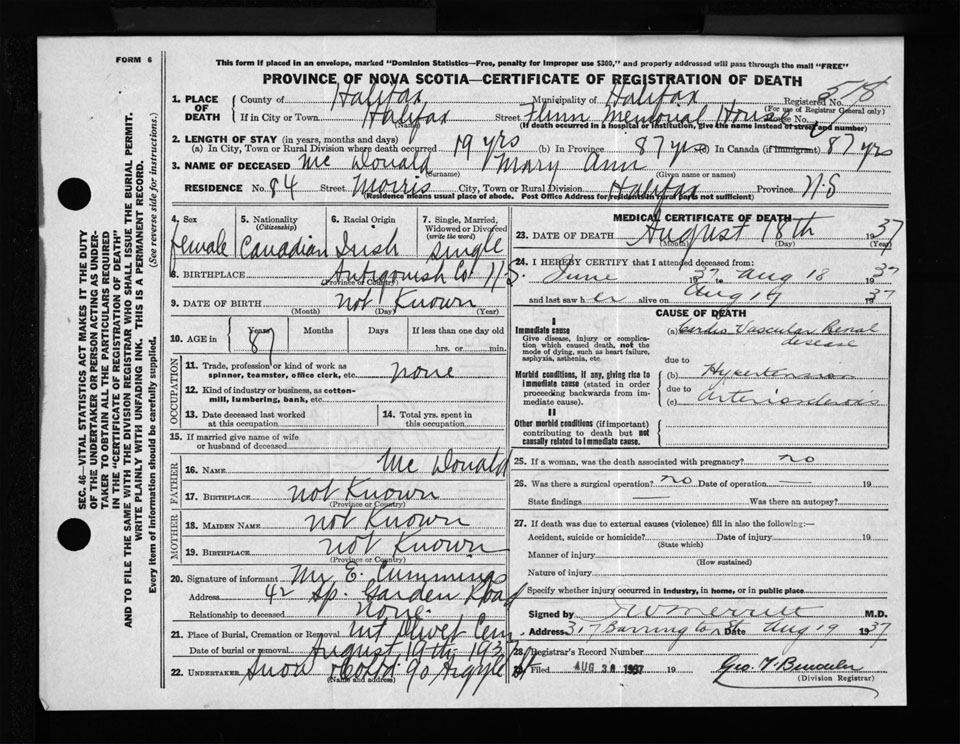 FORM 6
This form if placed in an envelope, marked "Dominion Statistics—Free, penalty for improper use $300," and properly addressed will pass through the mail "FREE"
PROVINCE OF NOVA SCOTIA—CERTIFICATE OF REGISTRATION OF DEATH
1. PLACE OF DEATH
County of Halifax Municipality of Halifax Registered No. 518
(For use of Registrar General only)
If in City or Town Halifax Street Flinn Memorial House House No.
(Name) (If death occurred in a hospital or institution, give the name instead of street and number)
2. LENGTH OF STAY (in years, months and days)
(a) In City, Town or Rural Division where death occurred 19 yrs (b) In Province 87 yrs (c) In Canada (if immigrant) 87 yrs
3. NAME OF DECEASED Mc Donald Mary Ann
(Surname) (Given name or names)
RESIDENCE No. 84 Street Morris City, Town or Rural Division Halifax Province N.S
(Residence means usual place of abode. Post Office Address for residents in rural parts not sufficient)
4. Sex female
5. Nationality (Citizenship) Canadian
6. Racial Origin Irish
7. Single, Married, Widowed or Divorced (write the word) Single
8. BIRTHPLACE Antigonish Co N.S.
(Province or Country)
9. DATE OF BIRTH not Known
(Month) (Day) (Year)
10. AGE in Years Months Days If less than one day old
87 hrs. or min.
OCCUPATION
11. Trade, profession or kind of work as spinner, teamster, office clerk, etc. none
12. Kind of industry or business, as cotton-mill, lumbering, bank, etc.
13. Date deceased last worked at this occupation
14. Total yrs. spent in this occupation
15. If married give name of wife or husband of deceased
FATHER
16. NAME Mc Donald
17. BIRTHPLACE not Known
(Province or Country)
MOTHER
18. MAIDEN NAME not Known
19. BIRTHPLACE not Known
(Province or Country)
20. Signature of informant E. Cummings
Address 42 Sp. Garden Road
Relationship to deceased none.
21. Place of Burial, Cremation or Removal mt Olivet Cem
Date of burial or removal August 19th 1937
22. UNDERTAKER Snow 90 Argyle St
(Name and address)
MEDICAL CERTIFICATE OF DEATH
23. DATE OF DEATH August 18th 1937
(Month) (Day) (Year)
24. I HEREBY CERTIFY that I attended deceased from:
June 1937 to Aug 18 1937
and last saw her alive on Aug 17 1937
CAUSE OF DEATH
I
Immediate cause
Give disease, injury or complication which caused death, not the mode of dying, such as heart failure, asphyxia, asthenia, etc.
(a) Cardio Vascular Renal disease
due to
Morbid conditions, if any, giving rise to immediate cause (stated in order proceeding backwards from immediate cause).
(b) Hypertension
due to
(c) Arteriosclerosis
II
Other morbid conditions (if important) contributing to death but not causally related to immediate cause.
25. If a woman, was the death associated with pregnancy? no
26. Was there a surgical operation? no Date of operation — 19
State findings — Was there an autopsy?
27. If death was due to external causes (violence) fill in also the following:—
Accident, suicide or homicide? Date of injury 19
(State which)
Manner of injury
(How sustained)
Nature of injury
Specify whether injury occurred in industry, in home, or in public place
Signed by M.D.
Address 317 Barrington St Date Aug 19 1937
28. Registrar's Record Number
Filed AUG 30 1937 19
(Division Registrar)
SEC. 46—VITAL STATISTICS ACT MAKES IT THE DUTY
OF THE UNDERTAKER OR PERSON ACTING AS UNDER-
TAKER TO OBTAIN ALL THE PARTICULARS REQUIRED
IN THE "CERTIFICATE OF REGISTRATION OF DEATH"
AND TO FILE THE SAME WITH THE DIVISION REGISTRAR WHO SHALL ISSUE THE BURIAL PERMIT.
WRITE PLAINLY WITH UNFADING INK. THIS IS A PERMANENT RECORD.
Every item of information should be carefully supplied. (See reverse side for instructions.)